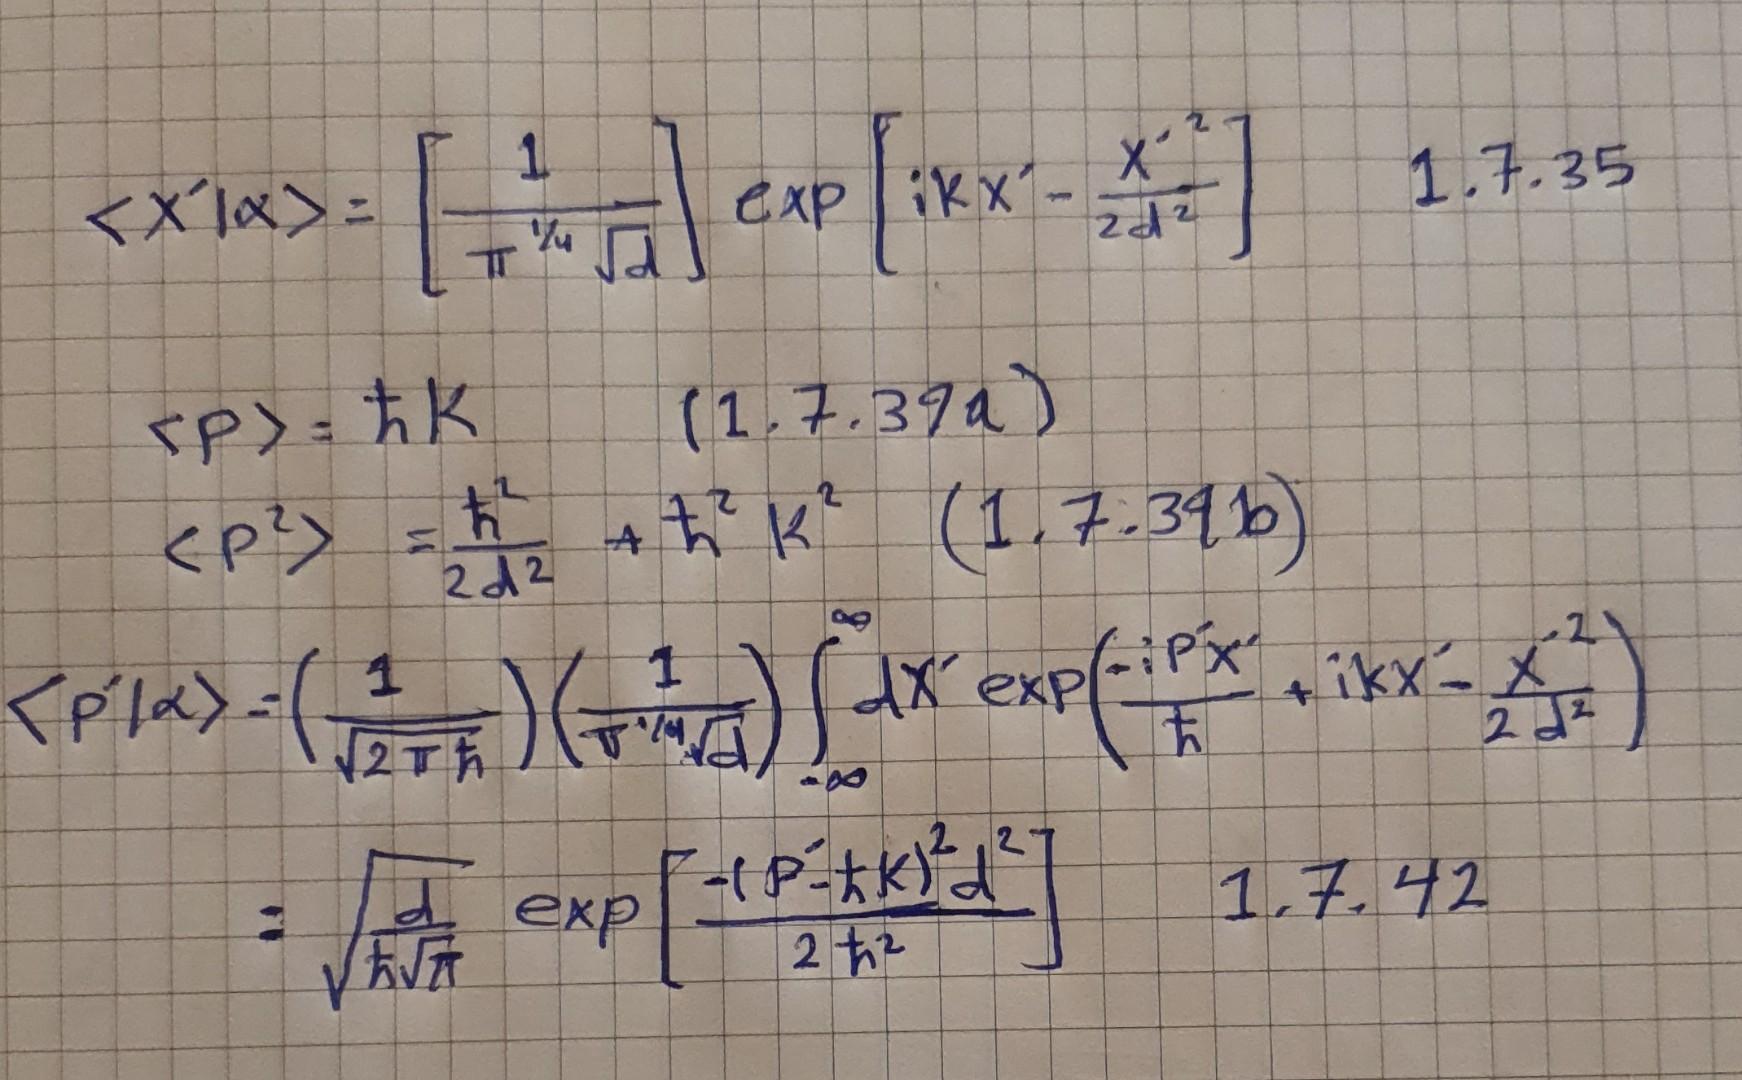 <x′|α> = [1/(π^1/4 √d)] exp[ikx′ - x′²/2d²] 1.7.35
<p> = ħk (1.7.39a)
<p²> = ħ²/2d² + ħ²k² (1.7.39b)
<p′|α> = (1/√2πħ)(1/(π^1/4 √d)) ∫_-∞^∞ dx′ exp(-ip′x′/ħ + ikx′ - x′²/2d²)
= √(d/ħ√π) exp[-(p′-ħk)²d²/2ħ²] 1.7.42